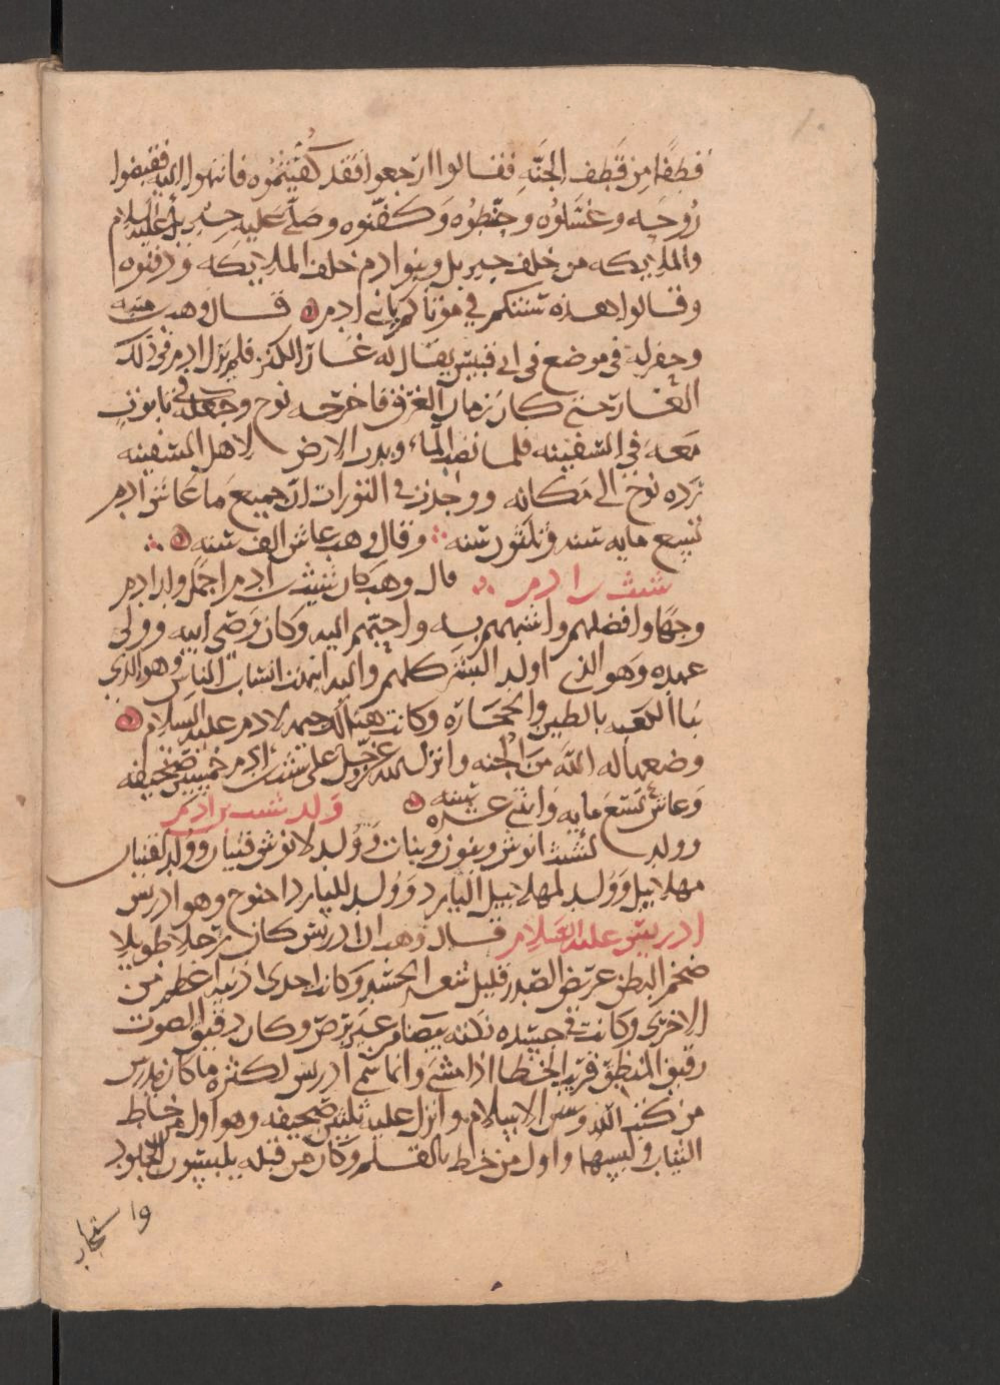 قطفا من قطف الجنه فقالوا ارجعوا فقد كفيتموه فانتهوا اليه فقبضوا
روحه وغسلوه وحنطوه وكفنوه وصلى عليه جبريل عليه السلام
والملايكه من خلف جبريل وبنوا ادم خلف الملايكه ودفنوه
وقالوا هذه سنتكم في موتاكم يا بني ادم قال وهب منبه
وحفر له في موضع في ابي قبيس يقال له غار الكنز فلم يزل ادم في ذلك
الغار حتى كان زمان الغرق فاخرجه نوح وجعله في تابوت
معه في السفينه فلما نضب الماء وبدت الارض لاهل السفينه
رده نوح الى مكانه ووجدت في التورات ان جميع ما عاش ادم
تسع مايه سنه وثلثون سنه وقال وهب عاش الف سنه
شيث بن ادم قال وهب كان شيث بن ادم اجمل ولد ادم
وجها وافضلهم واشبههم به واحبهم اليه وكان وصي ابيه وولي
عهده وهو الذي اولد البشر كلهم واليه انتهت انساب الناس وهو الذي
بنا الكعبه بالطين والحجاره وكانت هناك خيمه لادم عليه السلام
وضعها له الله من الجنه وانزل الله عز وجل على شيث بن ادم خمسين صحيفه
وعاش تسع مايه واثنى عشره سنه ولد شيث بن ادم
وولد لشيث انوش وبنون وبنات وولد لانوش قنيان وولد لقنيان
مهلاييل وولد لمهلاييل اليارد وولد لليارد احنوح وهو ادريس
ادريس عليه السلام قال وهب ان ادريس كان رجلا طويلا
ضخم البطن عريض الصدر قليل شعر الجسد وكانت احدى اذنيه اعظم من
الاخرى وكانت في جسده نكته بيضا من غير برص وكان رقيق الصوت
رقيق المنطق قريب الخطا اذا مشى وانما سمي ادريس لكثره ما كان يدرس
من كتب الله وسنن الاسلام وانزل عليه ثلثين صحيفه وهو اول من خاط
الثياب ولبسها واول من خط بالقلم وكان من قبله يلبسون الجلود